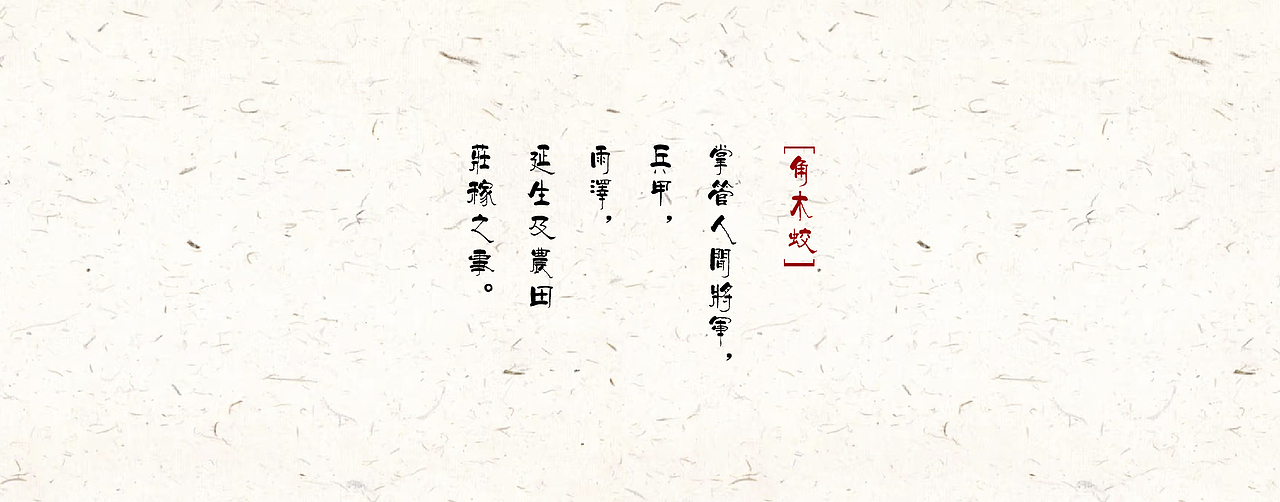 [角木蛟]
掌管人間將軍，
兵甲，
雨澤，
延生及農田
莊稼之事。